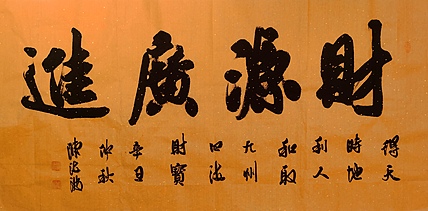 財源廣進
得天
時地
利人
和取
九州
四海
財寶
辛丑
仲秋